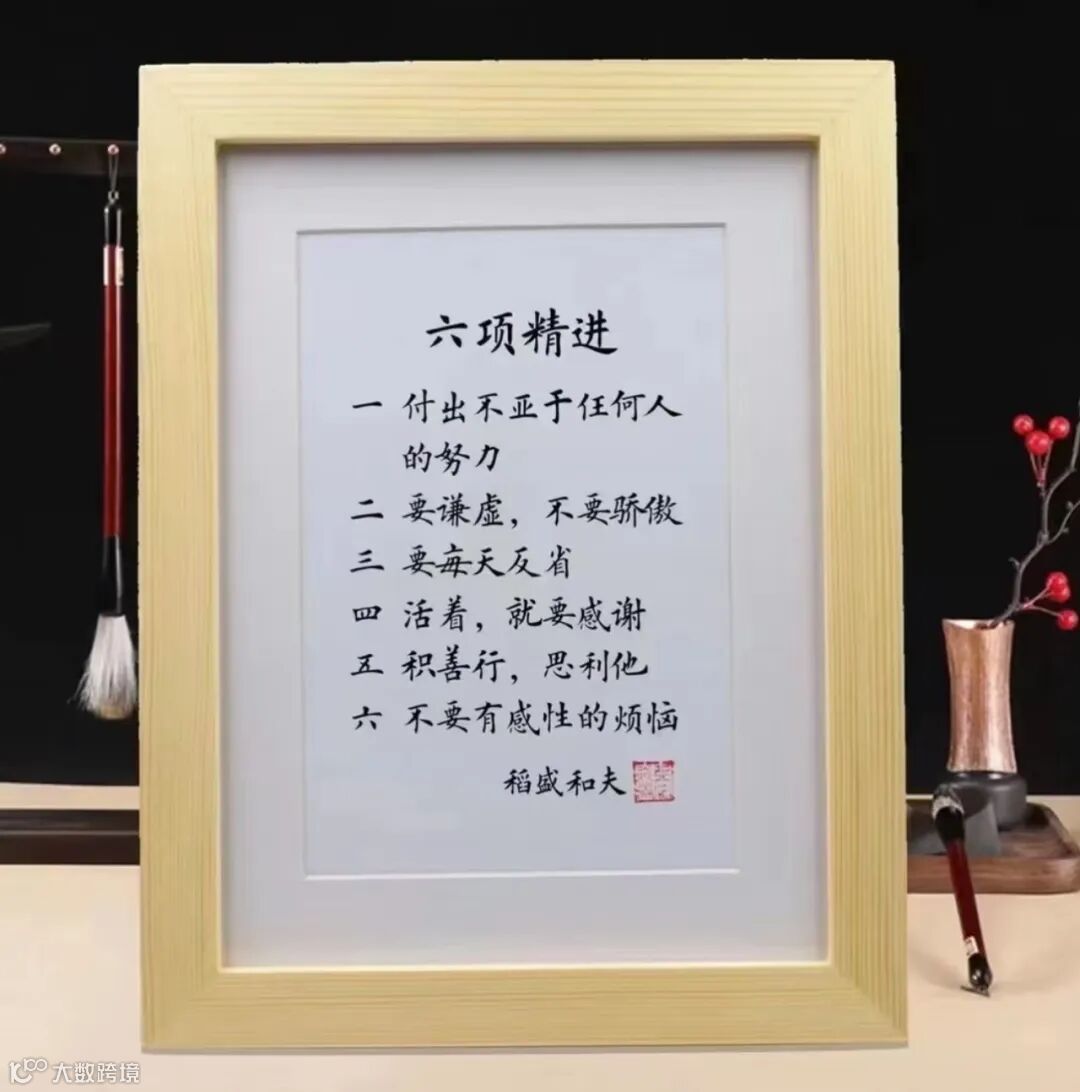 六项精进
一 付出不亚于任何人
的努力
二 要谦虚，不要骄傲
三 要每天反省
四 活着，就要感谢
五 积善行，思利他
六 不要有感性的烦恼
稻盛和夫
大数跨境